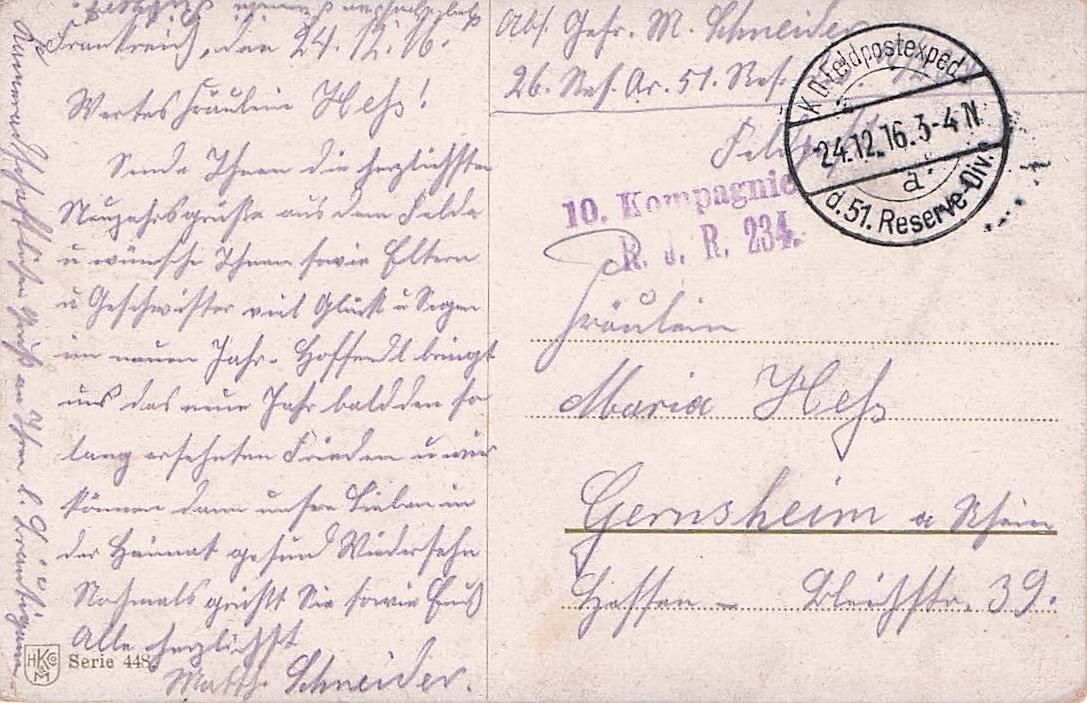 Frankreich, den 24.12.16.
Wertes Fräulein Heß!
Sende Ihnen die herzlichsten
Neujahrsgrüße aus dem Felde
u wünsche Ihnen sowie Eltern
u Geschwister viel Glück u Segen
im neuen Jahr. Hoffendl bringt
uns das neue Jahr bald den so
lang ersehnten Frieden u wir
können dann unsre Lieben in
der Heimat gesund Wiedersehn
Nochmals grüßt Sie sowie
Alle herzlichst
Matth. Schneider.
HKCo M
Serie 448
Abs. Gefr. M. Schneider
26. Res. Ar. 51. Res.
K.D. Feldpostexped.
24.12.16.3-4N
a
d. 51. Reserve-Div.
10. Kompagnie
R. J. R. 234.
Fräulein
Maria Heß
Gernsheim a Rhein
Hessen - Bleichstr. 39.